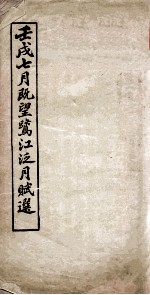 壬戌七月既望鷺江泛月賦選